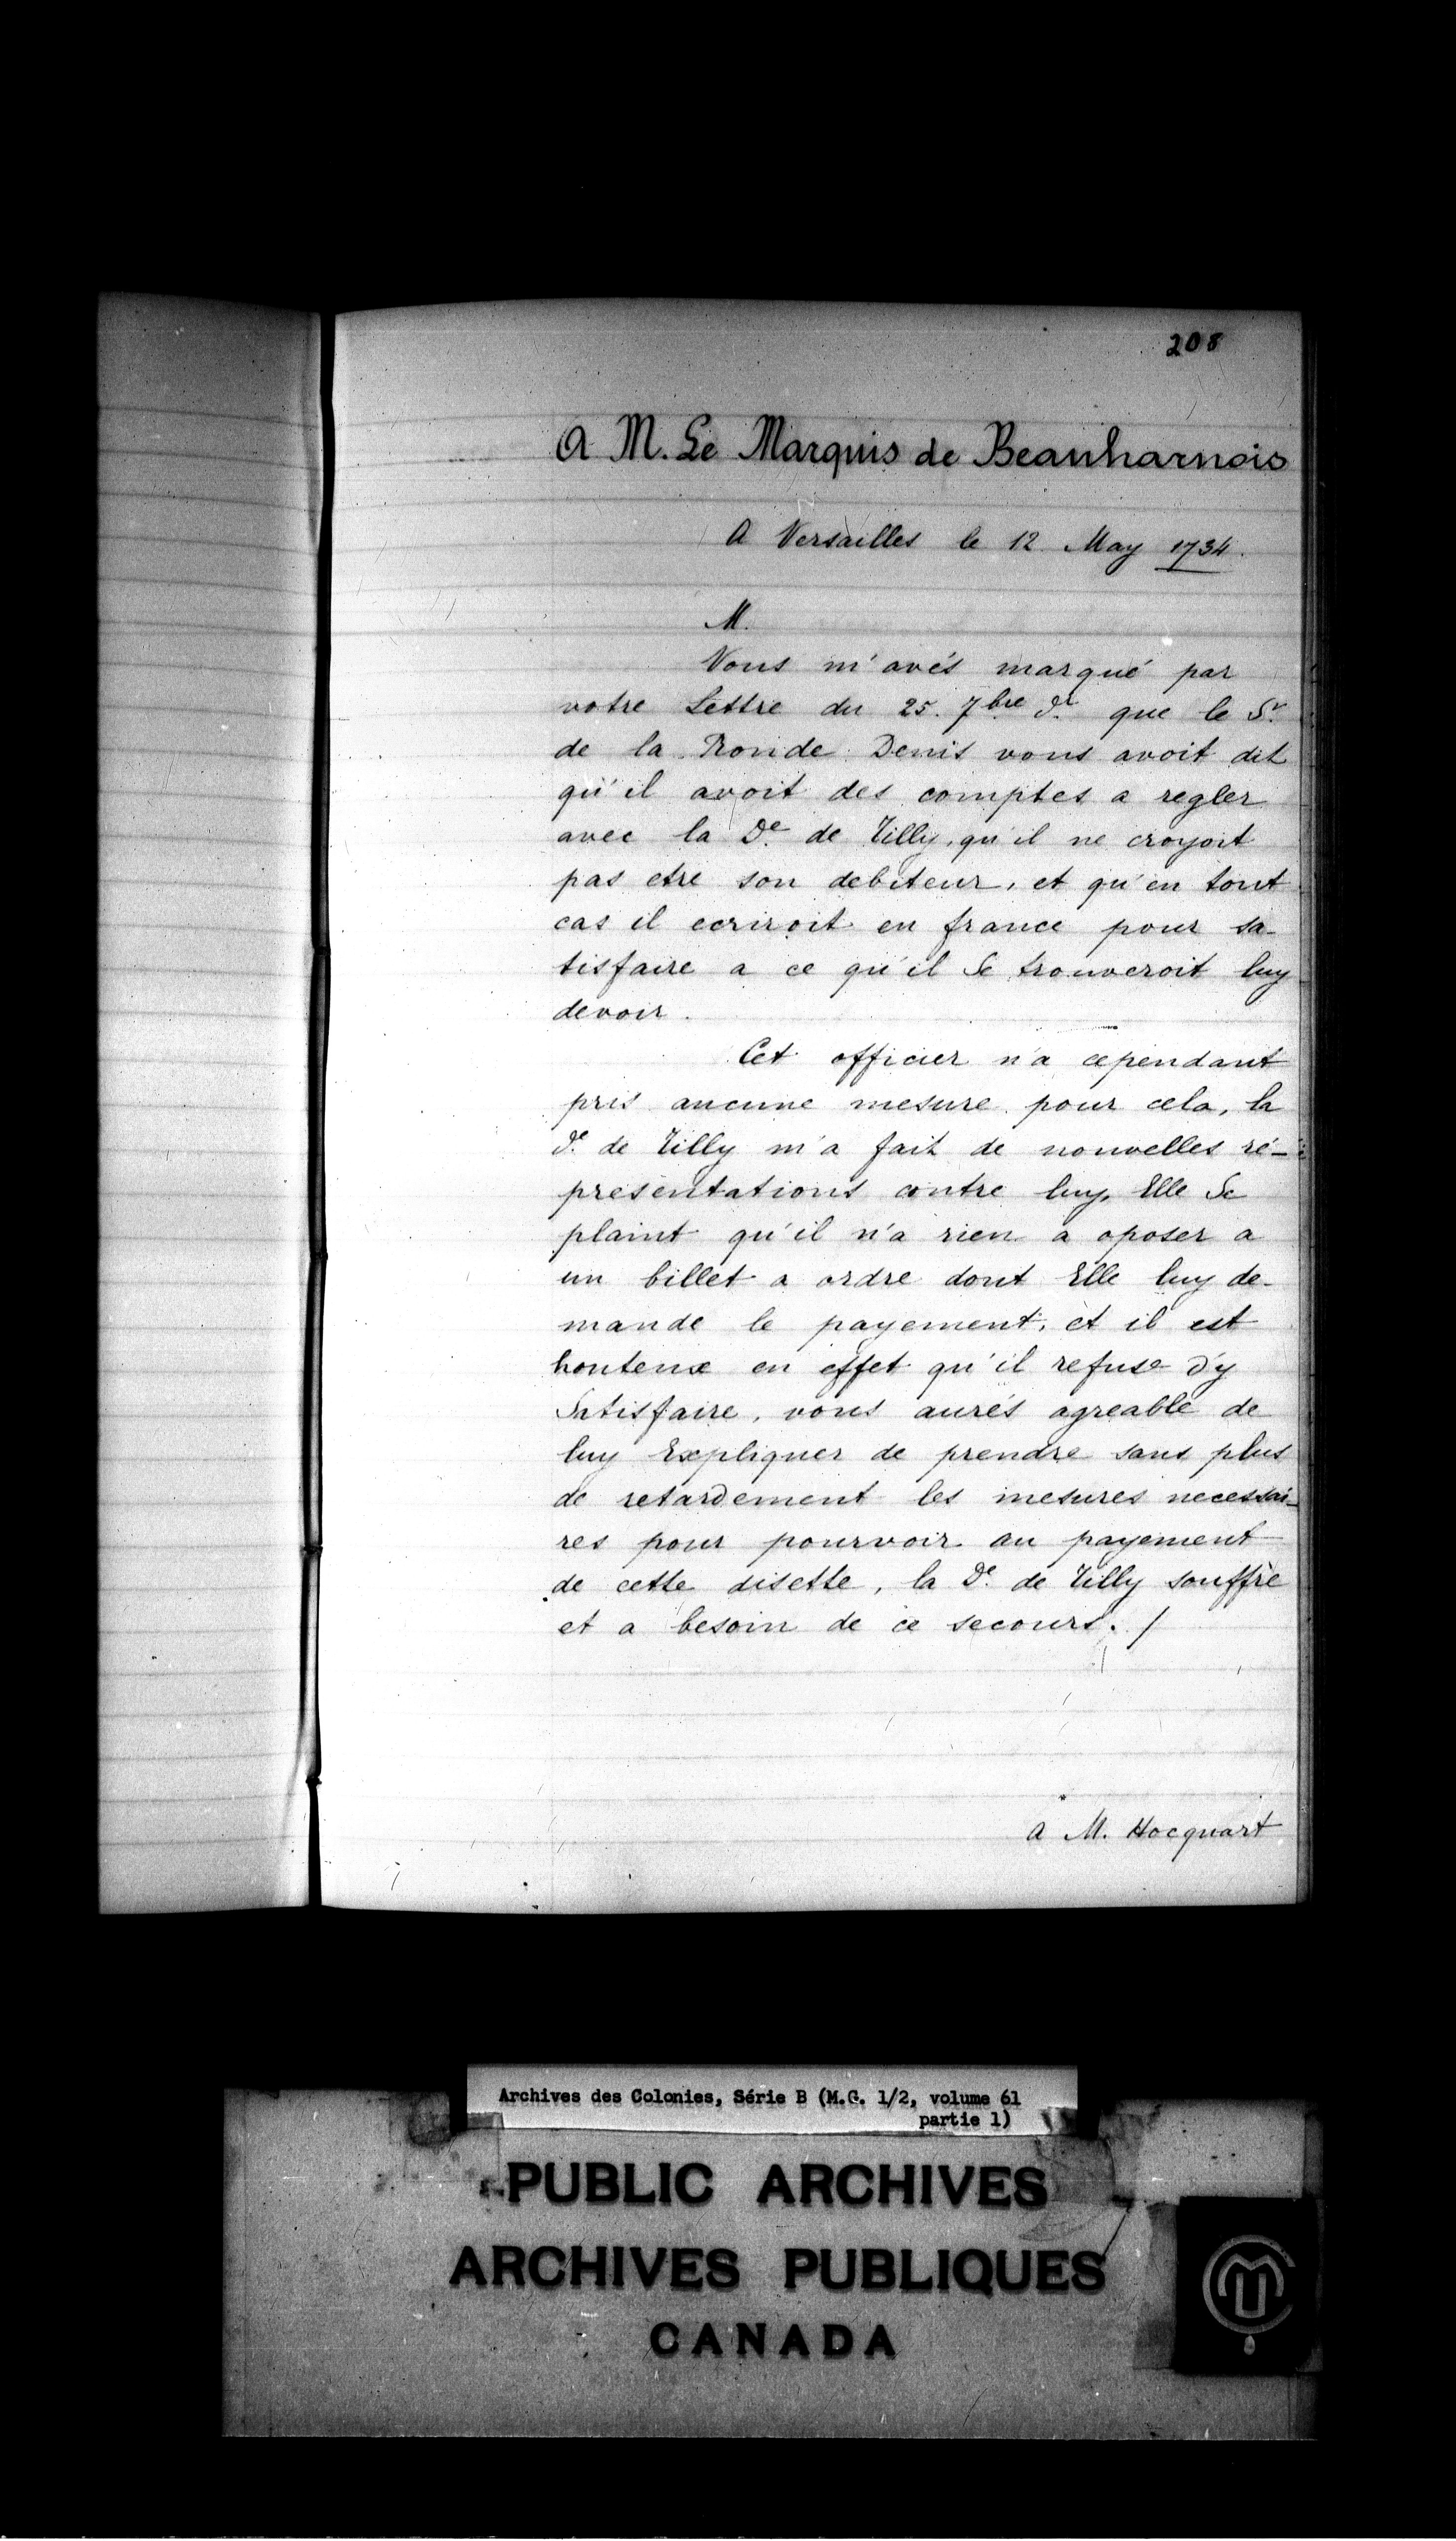 208
A M. Le Marquis de Beauharnois
A Versailles le 12 May 1734.
M.
Vous m'avés marqué par
votre Lettre du 25. 7bre dr. que le Sr.
de la Ronde Denis vous avoit dit
qu'il avoit des comptes a regler
avec la De. de Tilly, qu'il ne croyoit
pas etre son debiteur, et qu'en tout
cas il ecriroit en france pour sa-
tisfaire a ce qu'il Se trouveroit luy
devoir.
Cet officier n'a cependant
pris aucune mesure pour cela, la
de. de Tilly m'a fait de nouvelles ré-
presentations contre luy, Elle Se
plaint qu'il n'a rien a oposer a
un billet a ordre dont Elle luy de-
mande le payement, et il est
honteux en effet qu'il refuse d'y
Satisfaire, vous aurés agreable de
luy Expliquer de prendre sans plus
de retardement les mesures necessai-
res pour pourvoir au payement
de cette disette, la De. de Tilly souffre
et a besoin de ce secours. /
A M. Hocquart
Archives des Colonies, Série B (M.G. 1/2, volume 61
partie 1)
PUBLIC ARCHIVES
ARCHIVES PUBLIQUES
CANADA